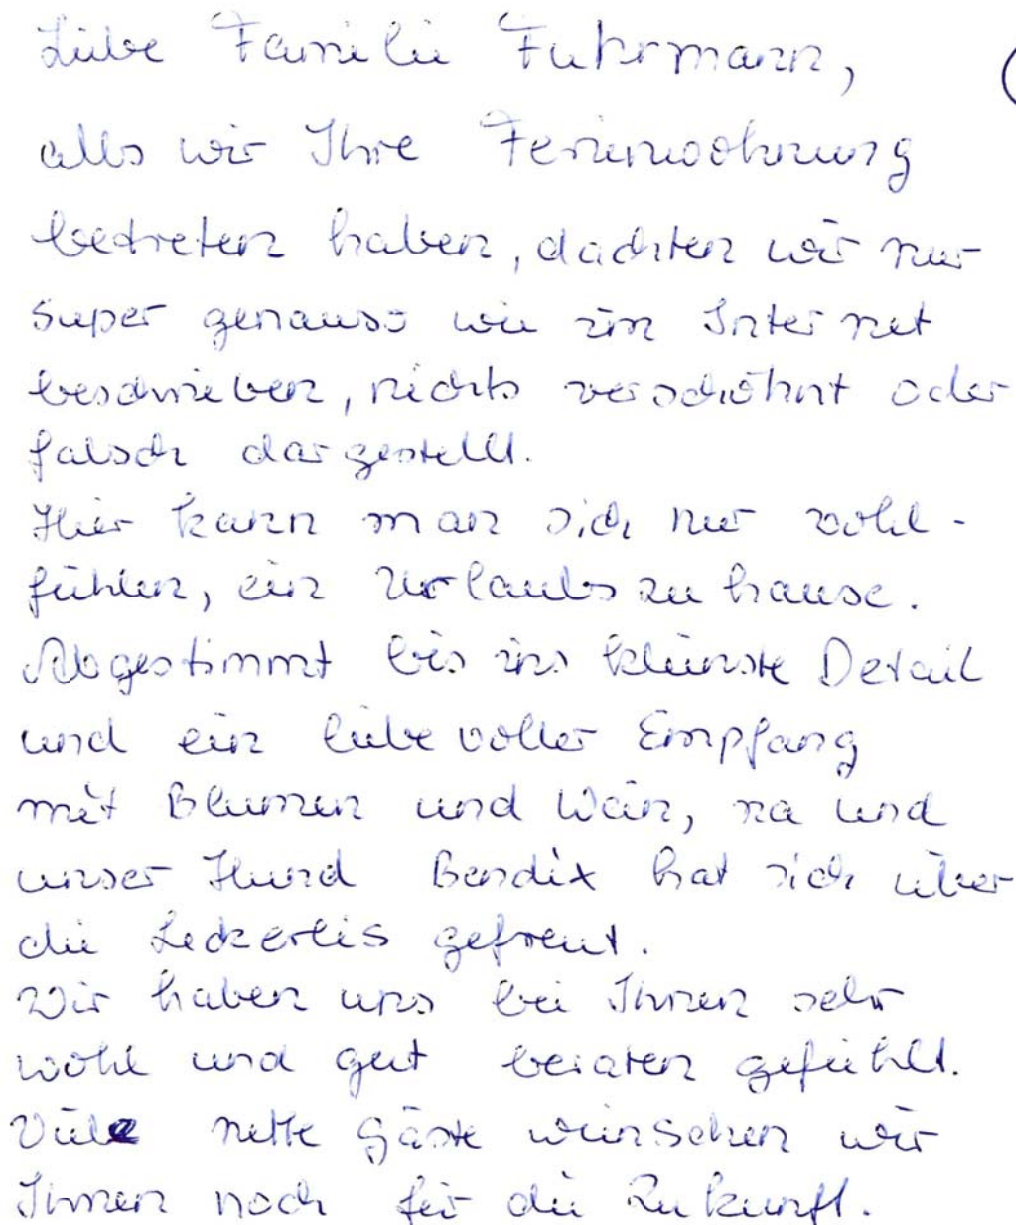 Liebe Familie Fuhrmann,
alls wir Ihre Ferienwohnung
betreten haben, dachten wir nur
super genauso wie im Internet
beschrieben, nichts verschöhnt oder
falsch dargestellt.
Hier kann man sich nur wohl-
fühlen, ein Urlaubszuhause.
Abgestimmt bis ins kleinste Detail
und ein liebevoller Empfang
mit Blumen und Wein, na und
unser Hund Bendix hat sich über
die Leckerlis gefreut.
Wir haben uns bei Ihnen sehr
wohl und gut beraten gefühlt.
Viele nette Gäste wünschen wir
Ihnen noch für die Zukunft.